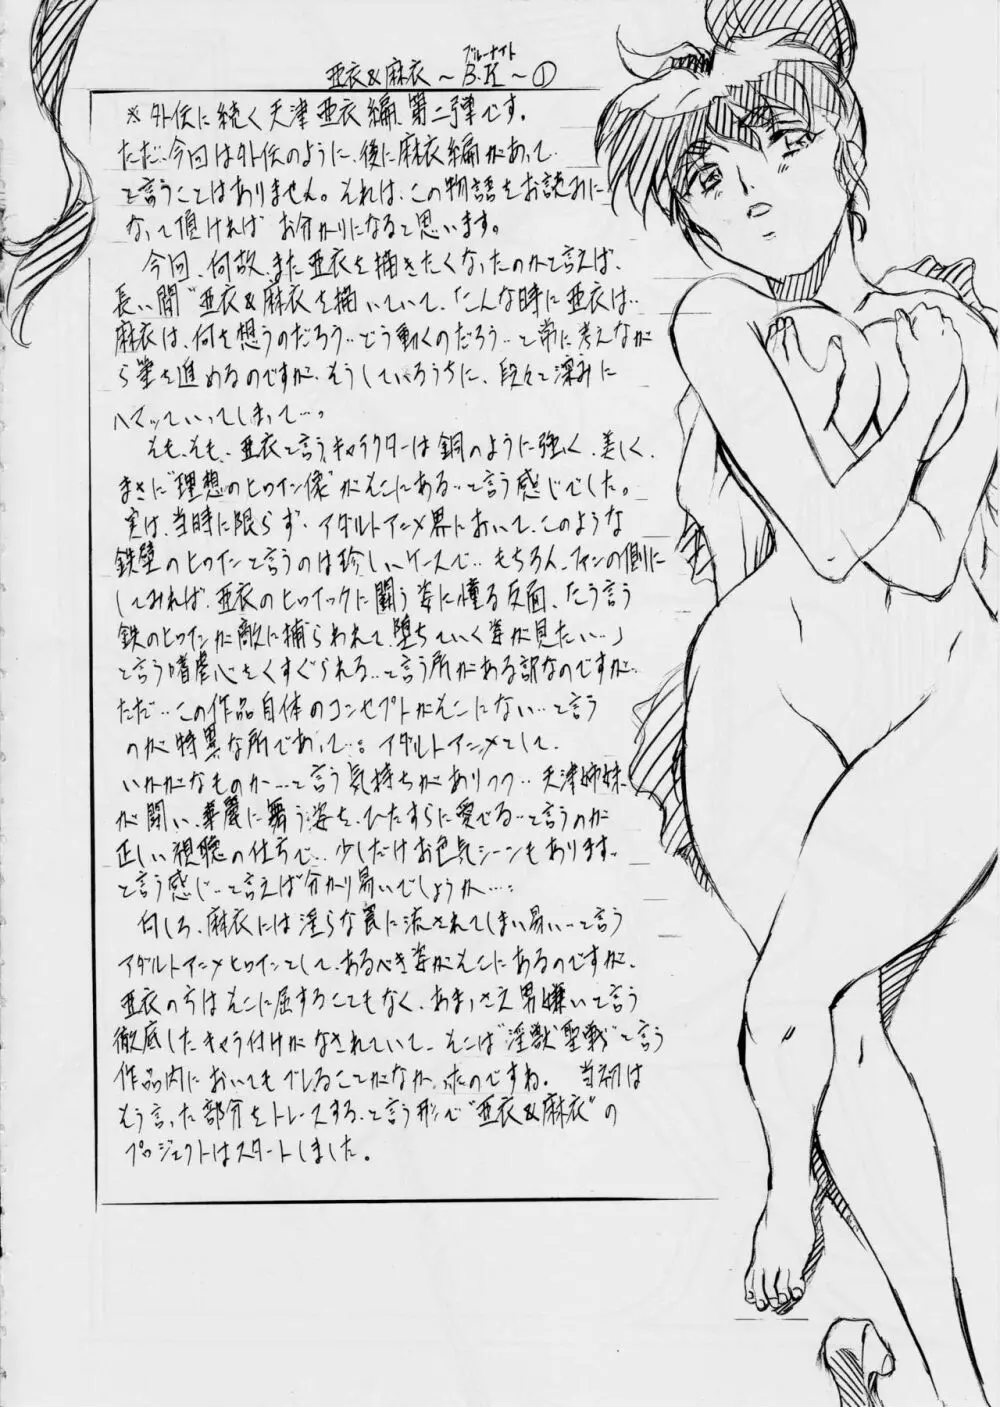 ブルーナイト
亜衣&麻衣 ~ B.K ~ ①
※外伝に続く天津亜衣編、第二弾です。
ただ、今回は外伝のように、後に麻衣編があって
と言うことはありません。それは、この物語をお読みに
なって頂ければ お分かりになると思います。
今回、何故、また亜衣を描きたくなったのかと言えば、
長い間"亜衣&麻衣を描いていて、「こんな時に亜衣は‥
麻衣は、何を想うのだろう‥どう動くのだろう‥と常に考えなが
ら筆を進めるのですが、そうしているうちに、段々と深みに
ハマッていってしまって…。
そも、そも、亜衣と言うキャラクターは鋼のように強く、美しく、
まさに"理想のヒロイン像"がそこにある‥と言う感じでした。
実は、当時に限らず、アダルトアニメ界において、このような
鉄壁のヒロインと言うのは珍しいケースで‥もちろん、ファンの側に
してみれば、亜衣のヒロイックに闘う姿に憧る反面、そう言う
鉄のヒロインが敵に捕らわれて、堕ちていく姿が見たい…」
と言う嗜虐心をくすぐられる‥と言う所がある訳なのですが‥
ただ‥この作品自体のコンセプトがそこにない‥と言う
のが特異な所であって…。アダルトアニメとして、
いかがなものか…と言う気持ちがありつつ‥天津姉妹
が闘い、華麗に舞う姿を、ひたすらに愛でる‥と言うのが
正しい視聴の仕方で‥少しだけお色気シーンもあります‥
と言う感じ‥と言えば分かり易いでしょうか…。
何しろ、麻衣には淫らな罠に流されてしまい易い‥と言う
アダルトアニメヒロインとして、あるべき姿がそこにあるのですが、
亜衣の方はそこに屈することもなく、あまっさえ男嫌いと言う
徹底したキャラ付けがなされていて、そこは"淫獣聖戦"と言う
作品内においてもブレることがなかったのですね。 当初は
そう言った部分をトレースすると言う形で"亜衣&麻衣"の
プロジェクトはスタートしました。